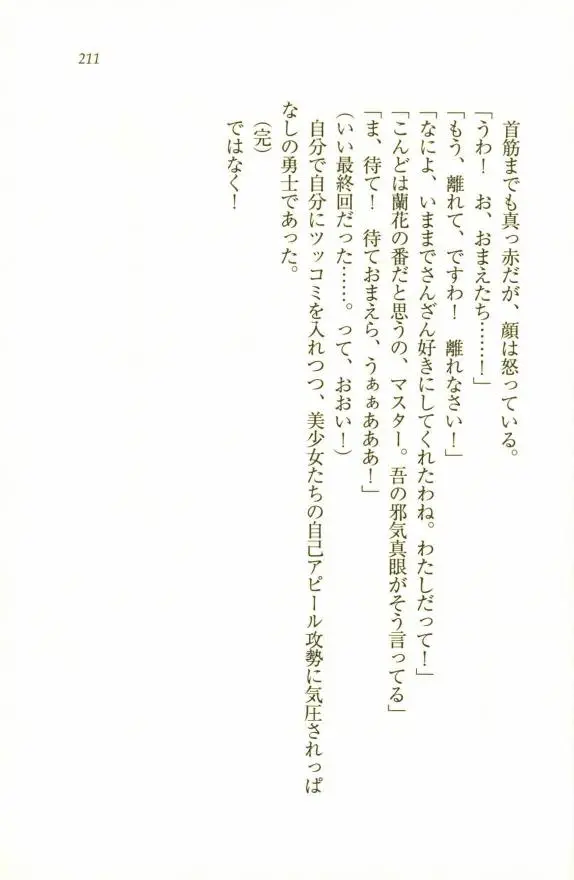 211
首筋までも真っ赤だが、顔は怒っている。
「うわ！　お、おまえたち……！」
「もう、離れて、ですわ！　離れなさい！」
「なによ、いままでさんざん好きにしてくれたわね。わたしだって！」
「こんどは蘭花の番だと思うの、マスター。吾の邪気真眼がそう言ってる」
「ま、待て！　待ておまえら、うぁぁあああ！」
（いい最終回だった……。って、おおい！）
自分で自分にツッコミを入れつつ、美少女たちの自己アピール攻勢に気圧されっぱ
なしの勇士であった。
（完）
ではなく！